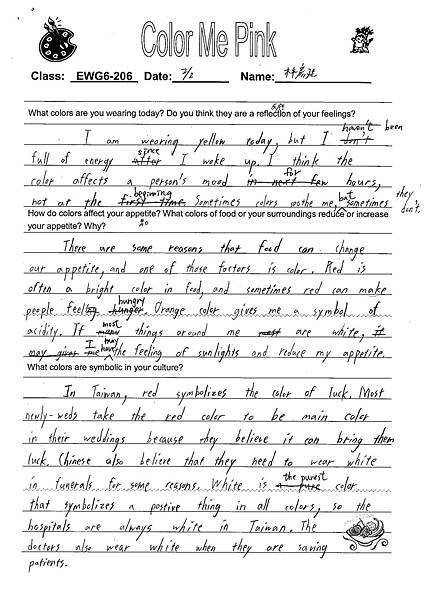 Color Me Pink
Class: EWG6-206 Date: 7/2 Name: 林
What colors are you wearing today? Do you think they are a reflection of your feelings?
haven't been
I am wearing yellow today, but I don't
since
full of energy after I woke up. I think the
for
color affects a person's mood in next few hours,
beginning but they
not at the first time. Sometimes colors soothe me, sometimes don't.
How do colors affect your appetite? What colors of food or your surroundings reduce or increase
your appetite? Why?
There are some reasons that food can change
our appetite, and one of those factors is color. Red is
often a bright color in food, and sometimes red can make
hungry
people feel hunger. Orange color gives me a symbol of
most
acidity. If many things around me most are white, it
I may
may gives me have the feeling of sunlights and reduce my appetite.
What colors are symbolic in your culture?
In Taiwan, red symbolizes the color of luck. Most
newly-weds take the red color to be main color
in their weddings because they believe it can bring them
luck. Chinese also believe that they need to wear white
the purest
in funerals for some reasons. White is a pure color
that symbolizes a postive thing in all colors, so the
hospitals are always white in Taiwan. The
doctors also wear white when they are saving
patients.